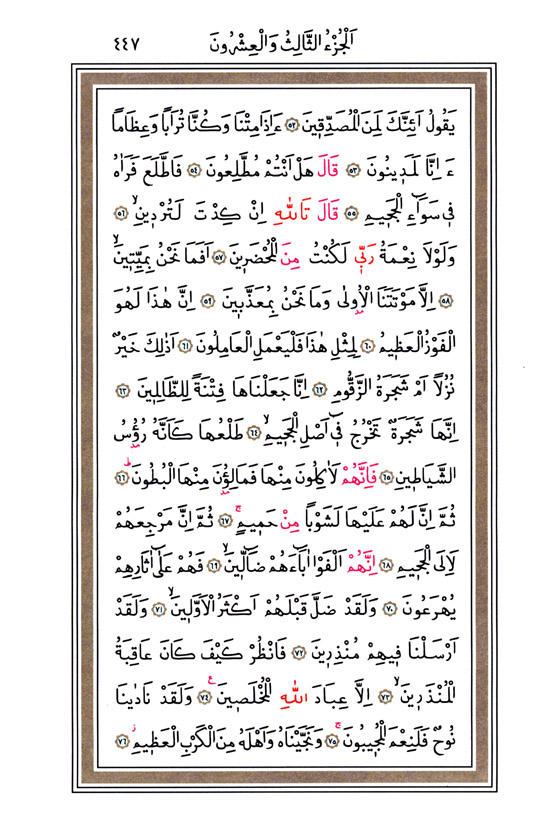 اَلْجُزْءُ الثَّالِثُ وَالْعِشْرُونَ ٤٤٧
يَقُولُ اَئِنَّكَ لَمِنَ الْمُصَدِّقِينَ ﴿٥٢﴾ ءَاِذَا مِتْنَا وَكُنَّا تُرَابًا وَعِظَامًا
ءَ اِنَّا لَمَدِينُونَ ﴿٥٣﴾ قَالَ هَلْ اَنْتُمْ مُطَّلِعُونَ ﴿٥٤﴾ فَاطَّلَعَ فَرَاٰهُ
فِي سَوَاءِ الْجَحِيمِ ﴿٥٥﴾ قَالَ تَاللّٰهِ اِنْ كِدْتَ لَتُرْدِينِ ﴿٥٦﴾
وَلَوْلَا نِعْمَةُ رَبِّي لَكُنْتُ مِنَ الْمُحْضَرِينَ ﴿٥٧﴾ اَفَمَا نَحْنُ بِمَيِّتِينَ
﴿٥٨﴾ اِلَّا مَوْتَتَنَا الْاُولٰى وَمَا نَحْنُ بِمُعَذَّبِينَ ﴿٥٩﴾ اِنَّ هٰذَا لَهُوَ
الْفَوْزُ الْعَظِيمُ ﴿٦٠﴾ لِمِثْلِ هٰذَا فَلْيَعْمَلِ الْعَامِلُونَ ﴿٦١﴾ اَذٰلِكَ خَيْرٌ
نُزُلًا اَمْ شَجَرَةُ الزَّقُّومِ ﴿٦٢﴾ اِنَّا جَعَلْنَاهَا فِتْنَةً لِلظَّالِمِينَ ﴿٦٣﴾
اِنَّهَا شَجَرَةٌ تَخْرُجُ فِي اَصْلِ الْجَحِيمِ ﴿٦٤﴾ طَلْعُهَا كَاَنَّهُ رُؤُسُ
الشَّيَاطِينِ ﴿٦٥﴾ فَاِنَّهُمْ لَاٰكِلُونَ مِنْهَا فَمَالِؤُنَ مِنْهَا الْبُطُونَ ﴿٦٦﴾
ثُمَّ اِنَّ لَهُمْ عَلَيْهَا لَشَوْبًا مِنْ حَمِيمٍ ﴿٦٧﴾ ثُمَّ اِنَّ مَرْجِعَهُمْ
لَاِلَى الْجَحِيمِ ﴿٦٨﴾ اِنَّهُمْ اَلْفَوْا اٰبَاءَهُمْ ضَالِّينَ ﴿٦٩﴾ فَهُمْ عَلٰى اٰثَارِهِمْ
يُهْرَعُونَ ﴿٧٠﴾ وَلَقَدْ ضَلَّ قَبْلَهُمْ اَكْثَرُ الْاَوَّلِينَ ﴿٧١﴾ وَلَقَدْ
اَرْسَلْنَا فِيهِمْ مُنْذِرِينَ ﴿٧٢﴾ فَانْظُرْ كَيْفَ كَانَ عَاقِبَةُ
الْمُنْذَرِينَ ﴿٧٣﴾ اِلَّا عِبَادَ اللّٰهِ الْمُخْلَصِينَ ﴿٧٤﴾ وَلَقَدْ نَادٰينَا
نُوحٌ فَلَنِعْمَ الْمُجِيبُونَ ﴿٧٥﴾ وَنَجَّيْنَاهُ وَاَهْلَهُ مِنَ الْكَرْبِ الْعَظِيمِ ﴿٧٦﴾